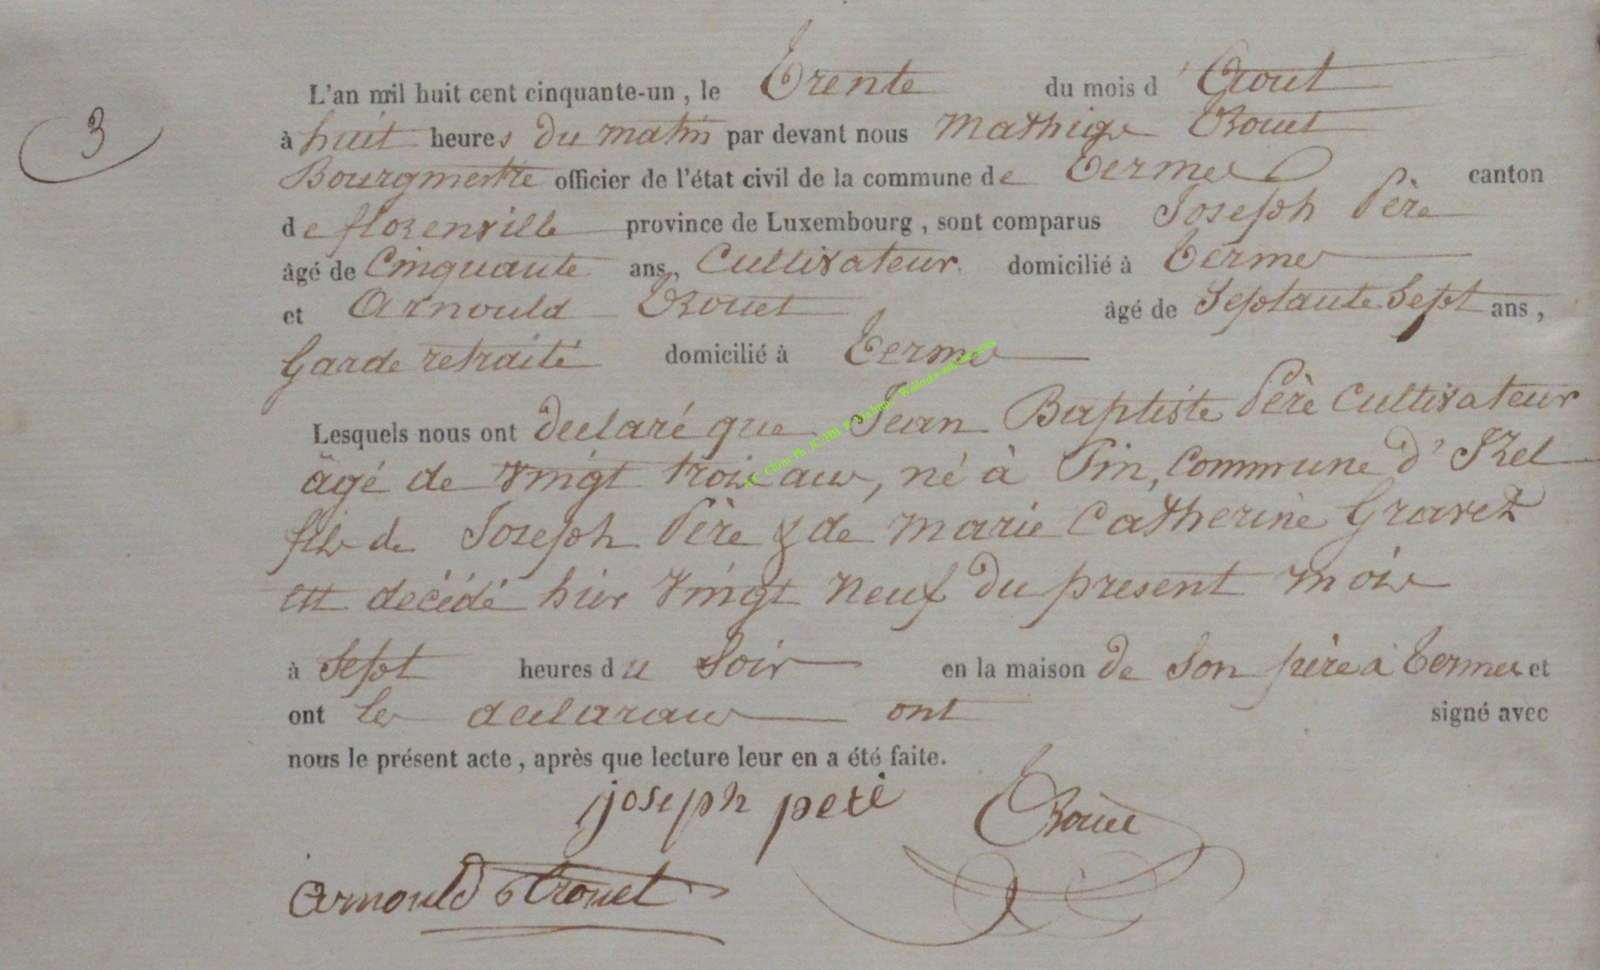 3
L'an mil huit cent cinquante-un, le Trente du mois d'Aout
à huit heures du matin par devant nous Mathieu Trouet
Bourgmestre officier de l'état civil de la commune de Termes canton
de florenville province de Luxembourg, sont comparus Joseph Père
âgé de Cinquante ans, Cultivateur domicilié à Termes
et Arnould Trouet âgé de Septante Sept ans,
Garde retraité domicilié à Termes
Lesquels nous ont declaré que Jean Baptiste Père Cultivateur
âgé de vingt trois ans, né à Pin, Commune d'Izel
fils de Joseph Père & de Marie Catherine Gravet
est decédé hier vingt neuf du present mois
à Sept heures du Soir en la maison de Son père à Termes et
ont les declarans ont signé avec
nous le présent acte, après que lecture leur en a été faite.
joseph peré Trouet
Arnould trouet